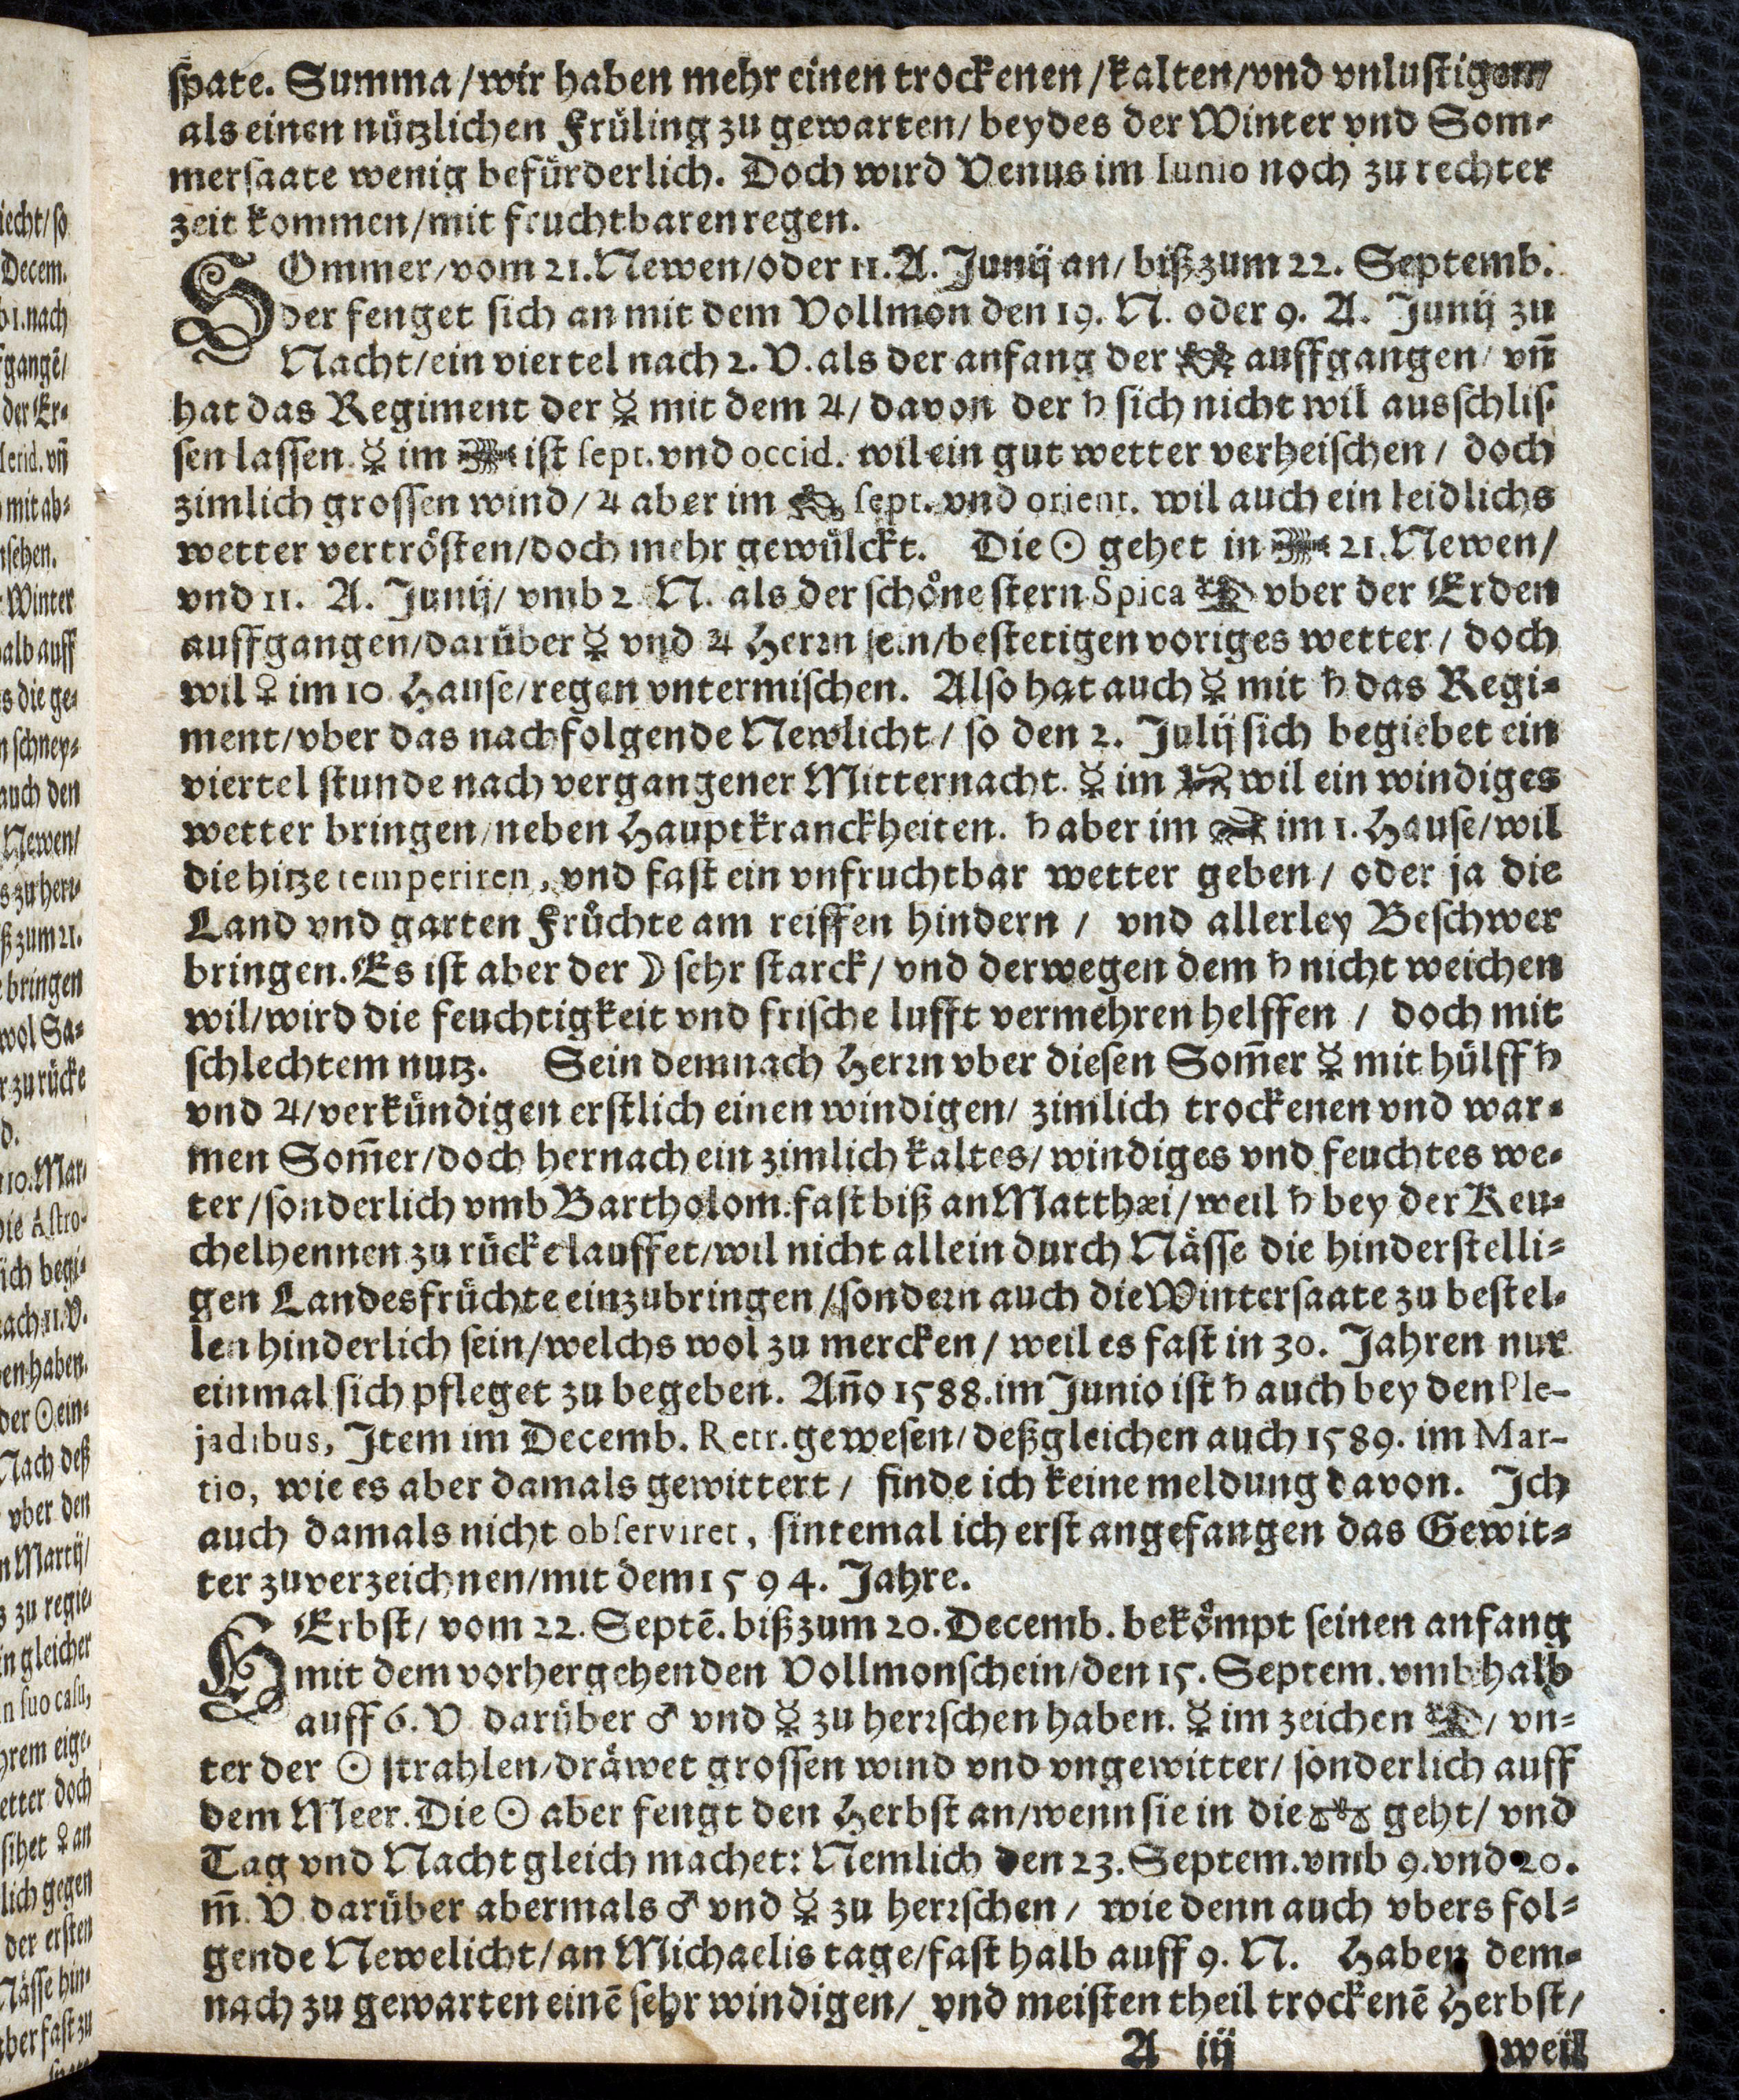 spate. Summa/wir haben mehr einen trockenen/kalten/vnd vnlustigen/
als einen nützlichen Früling zu gewarten/beydes der Winter vnd Som⸗
mersaate wenig befürderlich. Doch wird Venus im Iunio noch zu rechter
zeit kommen/mit fruchtbaren regen.
SOmmer/vom 21. Newen/oder 11. A. Junij an/ bißzum 22. Septemb.
der fenget sich an mit dem Vollmon den 19. N. oder 9. A. Junij zu
Nacht/ein viertel nach 2. V. als der anfang der ♊ auffgangen/ vñ
hat das Regiment der ☿ mit dem ♃/ davon der ♄ sich nicht wil ausschlis⸗
sen lassen. ☿ im ♋ ist sept. vnd occid. wil ein gut wetter verheischen/ doch
zimlich grossen wind/ ♃ aber im sept. vnd orient. wil auch ein leidlichs
wetter vertrösten/doch mehr gewülckt. Die ☉ gehet in ♋ 21. Newen/
vnd 11. A. Junij/ vmb 2 N. als der schöne stern Spica ♍ vber der Erden
auffgangen/darüber ☿ vnd ♃ Herrn sein/bestetigen voriges wetter/ doch
wil ♀ im 10 Hause/regen vntermischen. Also hat auch ☿ mit ♄ das Regi⸗
ment/vber das nachfolgende Newlicht/ so den 2. Julij sich begiebet ein
viertel stunde nach vergangener Mitternacht. ☿ im wil ein windiges
wetter bringen/neben Hauptkranckheiten. ♄ aber im im 1. Hause/wil
die hitze temperiren, vnd fast ein vnfruchtbar wetter geben/ oder ja die
Land vnd garten Früchte am reiffen hindern/ vnd allerley Beschwer
bringen. Es ist aber der ☽ sehr starck/ vnd derwegen dem ♄ nicht weichen
wil/wird die feuchtigkeit vnd frische lufft vermehren helffen/ doch mit
schlechtem nutz. Sein demnach Herrn vber diesen Som̃er ☿ mit hülff ♄
vnd ♃/verkündigen erstlich einen windigen/ zimlich trockenen vnd war⸗
men Som̃er/doch hernach ein zimlich kaltes/ windiges vnd feuchtes we⸗
ter/sonderlich vmb Bartholom. fast biß an Matthæi/weil ♄ bey der Keu⸗
chelhennen zu rücke lauffet/wil nicht allein durch Nässe die hinderstelli⸗
gen Landesfrüchte einzubringen/sondern auch die Wintersaate zu bestel⸗
len hinderlich sein/welchs wol zu mercken/ weil es fast in 30. Jahren nur
einmal sich pfleget zu begeben. Añno 1588. im Junio ist ♄ auch bey den Ple-
jadibus, Item im Decemb. Retr. gewesen/deßgleichen auch 1589. im Mar-
tio, wie es aber damals gewittert/ finde ich keine meldung davon. Ich
auch damals nicht observiret, sintemal ich erst angefangen das Gewit⸗
ter zuverzeichnen/mit dem 1594. Jahre.
HErbst/ vom 22. Septē. bißzum 20. Decemb. bekömpt seinen anfang
mit dem vorhergehenden Vollmonschein/den 15. Septem. vmb halb
auff 6. V. darüber ♂ vnd ☿ zu herrschen haben. ☿ im zeichen ♍/ vn⸗
ter der ☉ strahlen/dräwet grossen wind vnd vngewitter/ sonderlich auff
dem Meer. Die ☉ aber fengt den Herbst an/wenn sie in die ♎ geht/ vnd
Tag vnd Nacht gleich machet: Nemlich den 23. Septem. vmb 9. vnd 20.
m̃. V. darüber abermals ♂ vnd ☿ zu herrschen/ wie denn auch vbers fol⸗
gende Newelicht/an Michaelis tage/fast halb auff 9. N. Haben dem⸗
nach zu gewarten einē sehr windigen/ vnd meisten theil trockenē Herbst/
A iij weil